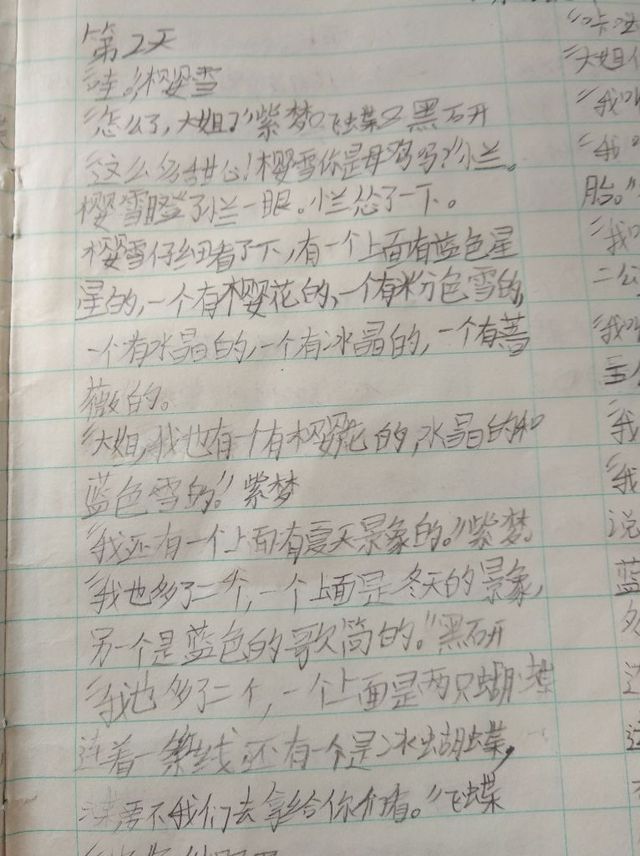 第2天
“哇。”樱雪
“怎么了，大姐？”紫梦 飞蝶 黑研
“这么多甜心！樱雪你是母鸡吗？”小兰。
樱雪瞪了小兰一眼。小兰怂了一下。
樱雪仔细看了下，有一个上面有蓝色星
星的，一个有樱花的，一个有粉色雪的，
一个有水晶的，一个有冰晶的，一个有蔷
薇的。
“大姐，我也有一个有樱花的，水晶的和
蓝色雪的。”紫梦
“我还有一个上面有夏天景象的。”紫梦。
“我也多了二个，一个上面是冬天的景象，
另一个是蓝色的歌筒的。”黑研
“我也多了二个，一个上面是两只蝴蝶
连着一条线 还有一个是冰蝴蝶，
要不我们去拿给你们看。”飞蝶
“大姐
“我
“我
胎。”
“我
二
“我
五
“我
“我
说
蓝
多